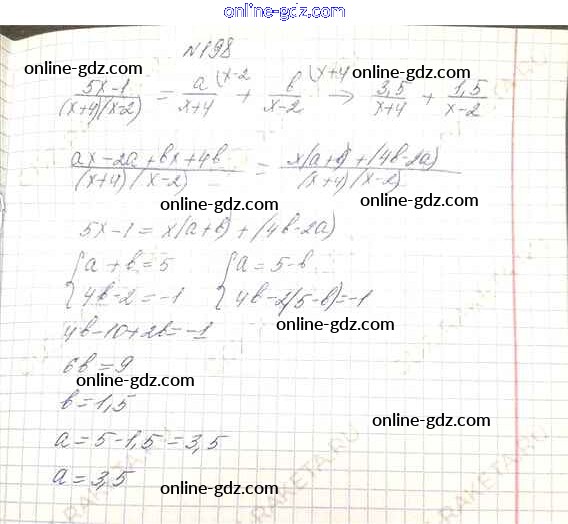 online-gdz.com
N198
online-gdz.com
(5x-1)/((x+4)(x-2)) = a/(x+4) (x-2 + b/(x-2) (x+4 → 3,5/(x+4) + 1,5/(x-2)
online-gdz.com
(ax-2a+bx+4b)/((x+4)(x-2)) = (x(a+b)+(4b-2a))/((x+4)(x-2))
online-gdz.com
online-gdz.com
5x-1=x(a+b)+(4b-2a)
{a+b=5 {a=5-b
online-gdz.com
{4b-2=-1 {4b-2(5-b)=-1
4b-10+2b=-1
online-gdz.com
6b=9
online-gdz.com
b=1,5
online-gdz.com
a=5-1,5=3,5
a=3,5
online-gdz.com